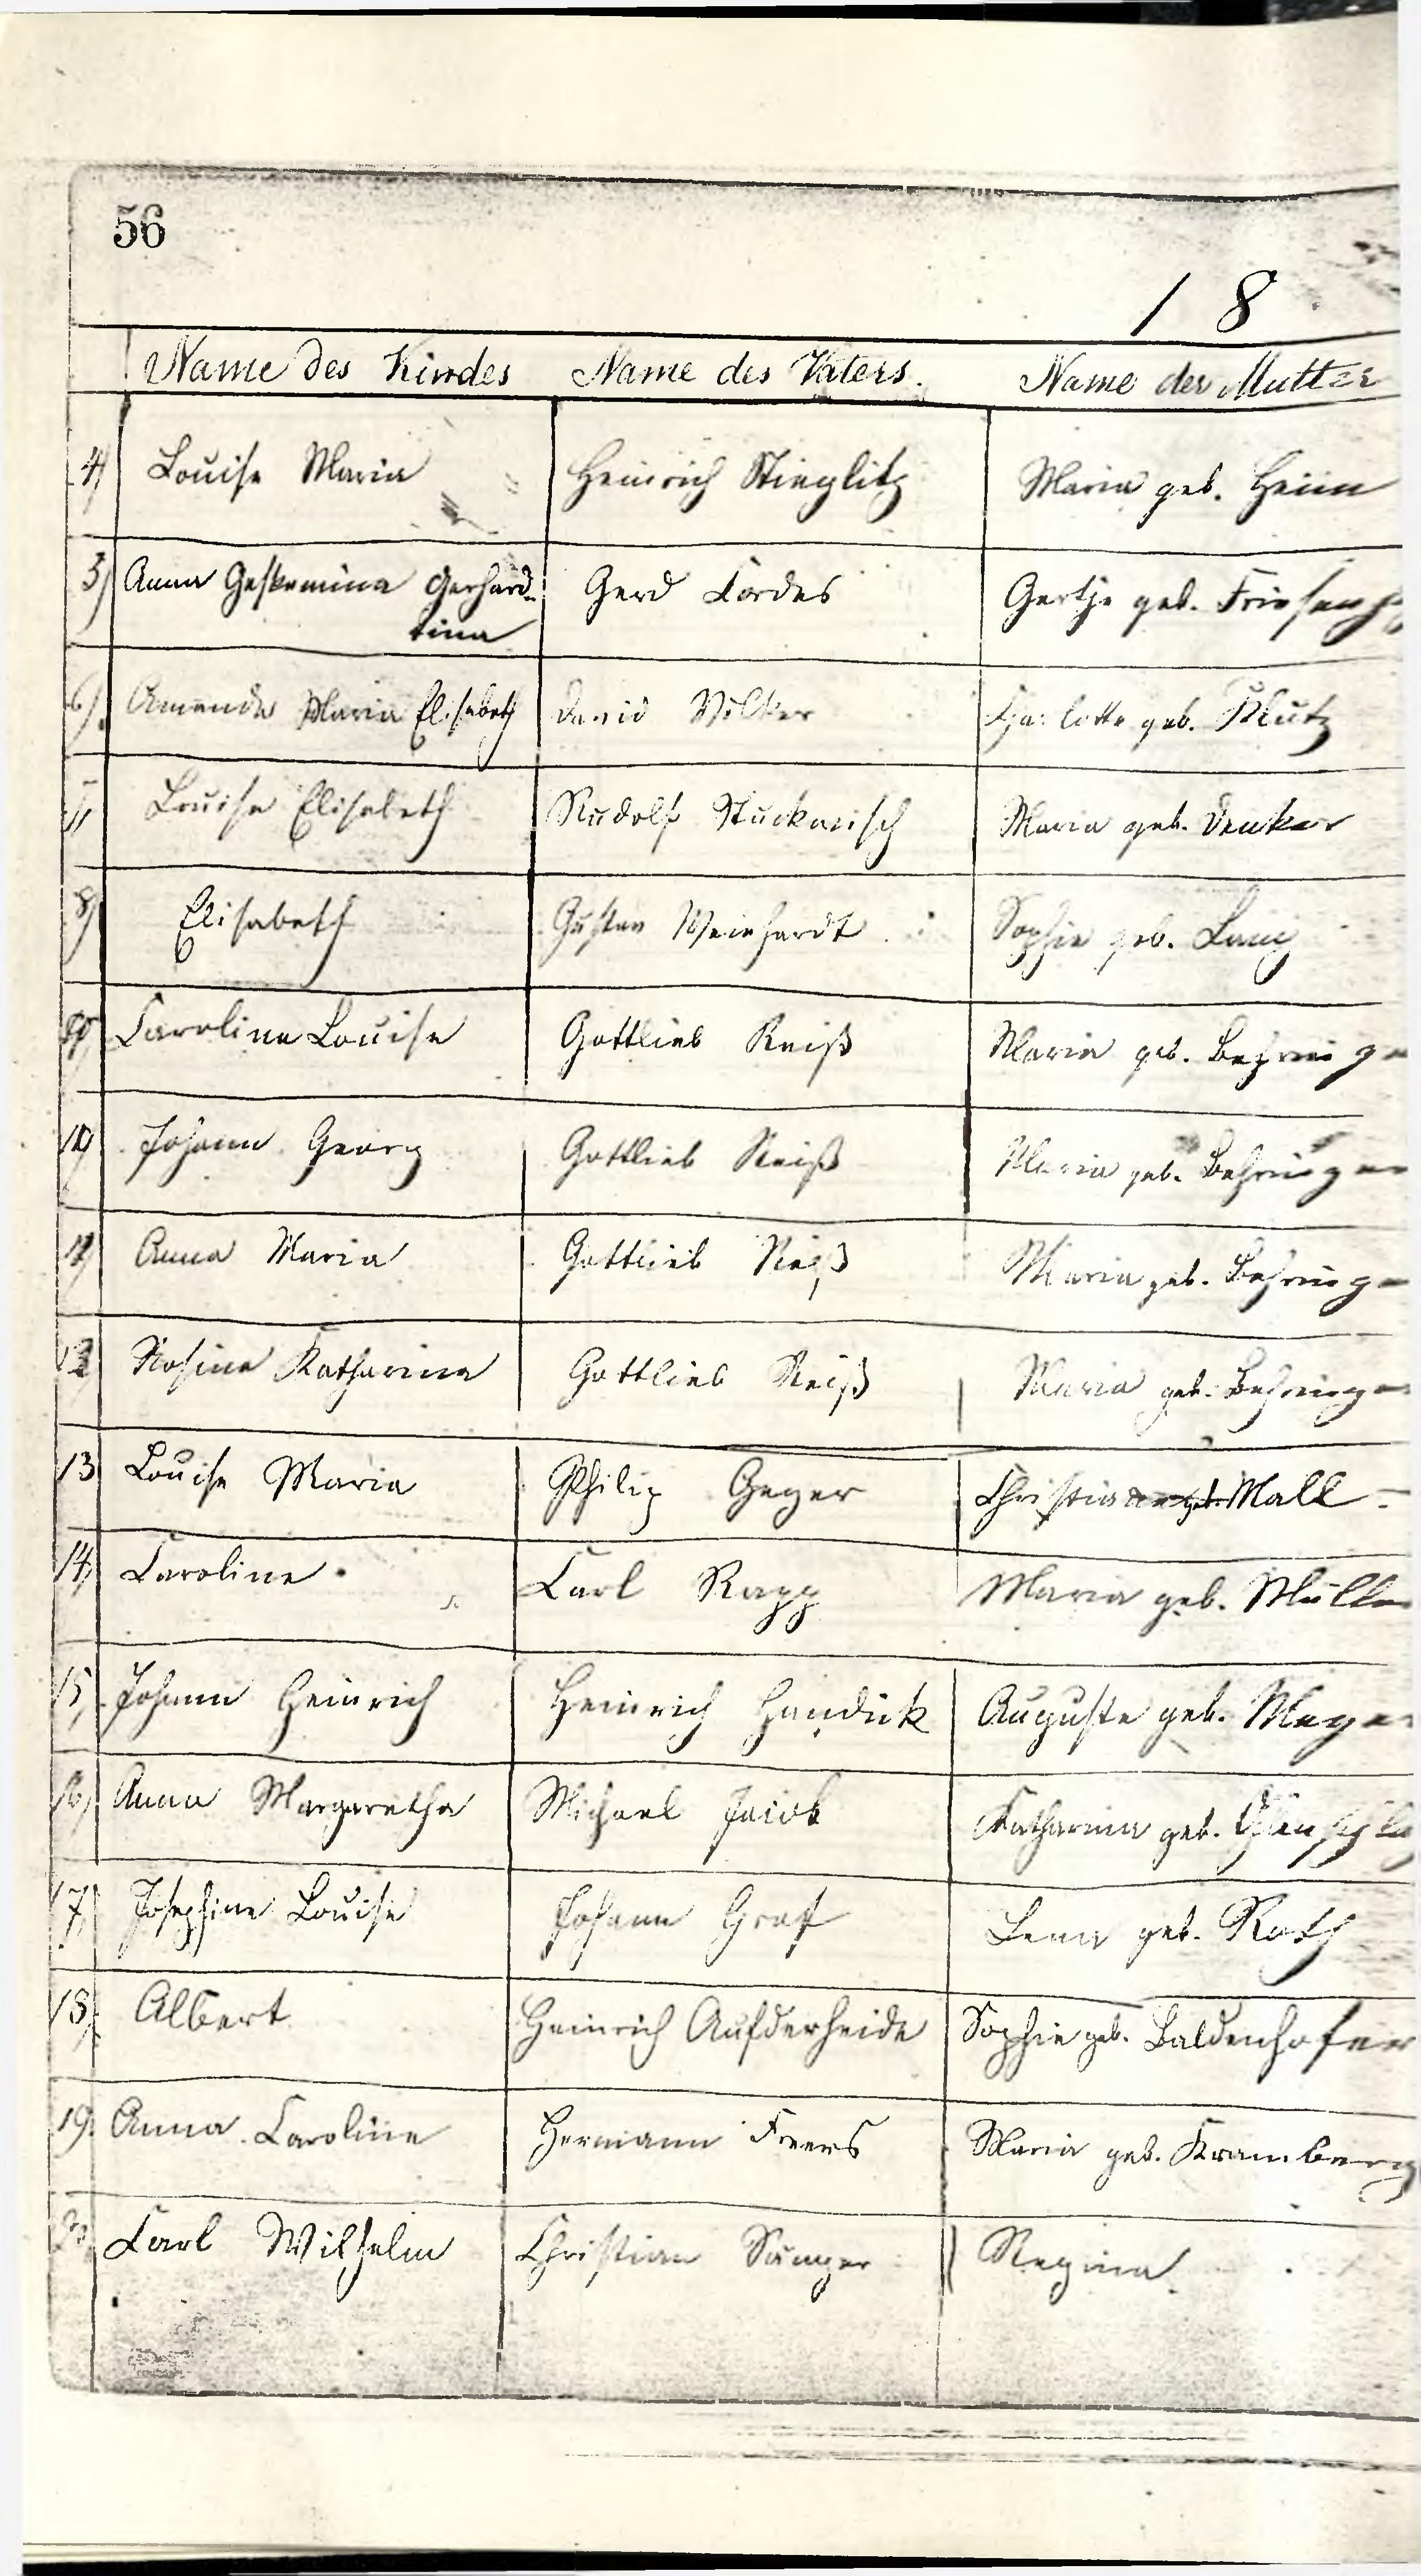 56
1 8
Name des Kindes Name des Vaters. Name der Mutter
4) Louise Maria Heinrich Stieglitz Maria geb. Heim
5) Anna Geskemina Gerhard- Gerd Cordes Gertje geb.
tina
6). Amanda Maria Elisabeth David Völker Charlotte geb. Klutz
Louise Elisabeth Rudolf Stuckwisch Maria geb. Denker
8) Elisabeth Gustav Weinhardt Sophie geb. Lang
Caroline Louise Gottlieb Reiß Maria geb. Behringe
10) Johann Georg Gottlieb Reiß Maria geb. Behringer
Anna Maria Gottlieb Reiß Maria geb. Behringe
12) Rosine Katharina Gottlieb Reiß Maria geb. Behringe
13 Louise Maria Philip Geyer Mall
14) Caroline Carl Rapp Maria geb. Mülle
15) Johann Heinrich Heinrich Handick Auguste geb. Meye
16) Anna Margaretha Michael Jacob Katharina geb.
17) Josephine Louise Johann Graf Lena geb. Roth
18) Albert Heinrich Aufderheide Sophie geb. Baldenhofer
19. Anna Caroline Hermann Freers Maria geb. Kramberg
Carl Wilhelm Christian Sänger Regina